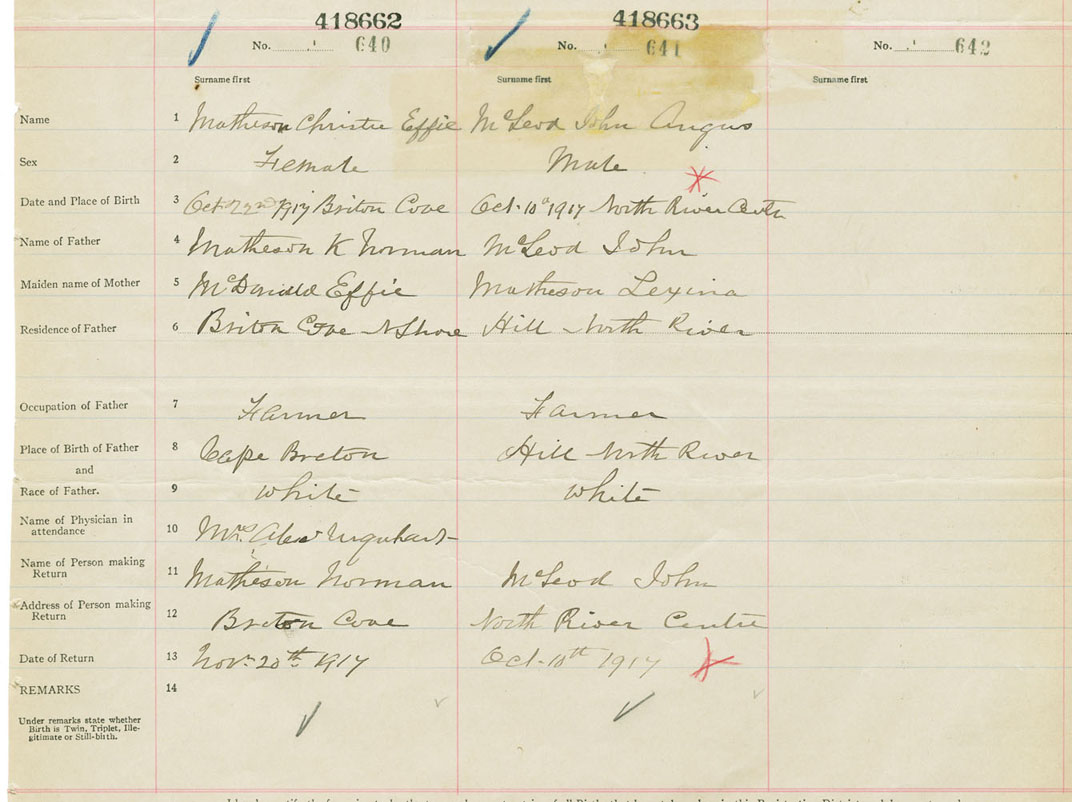 418662 418663
No. 640 No. 641 No. 642
Surname first Surname first Surname first
Name 1 Matheson Christie Effie McLeod John Angus
Sex 2 Female Male
Date and Place of Birth 3 Oct 22nd 1917 Briton Cove Oct. 10th 1917 North River Centre
Name of Father 4 Matheson K Norman McLeod John
Maiden name of Mother 5 McDonald Effie Matheson Lexina
Residence of Father 6 Briton Cove N Shore Hill North River
Occupation of Father 7 Farmer Farmer
Place of Birth of Father 8 Cape Breton Hill North River
and
Race of Father. 9 White White
Name of Physician in
attendance 10 Mrs. Alex Urquhart
Name of Person making
Return 11 Matheson Norman McLeod John
Address of Person making
Return 12 Breton Cove North River Centre
Date of Return 13 Nov. 20th 1917 Oct. 10th 1917
REMARKS 14
Under remarks state whether
Birth is Twin, Triplet, Ille-
gitimate or Still-birth.